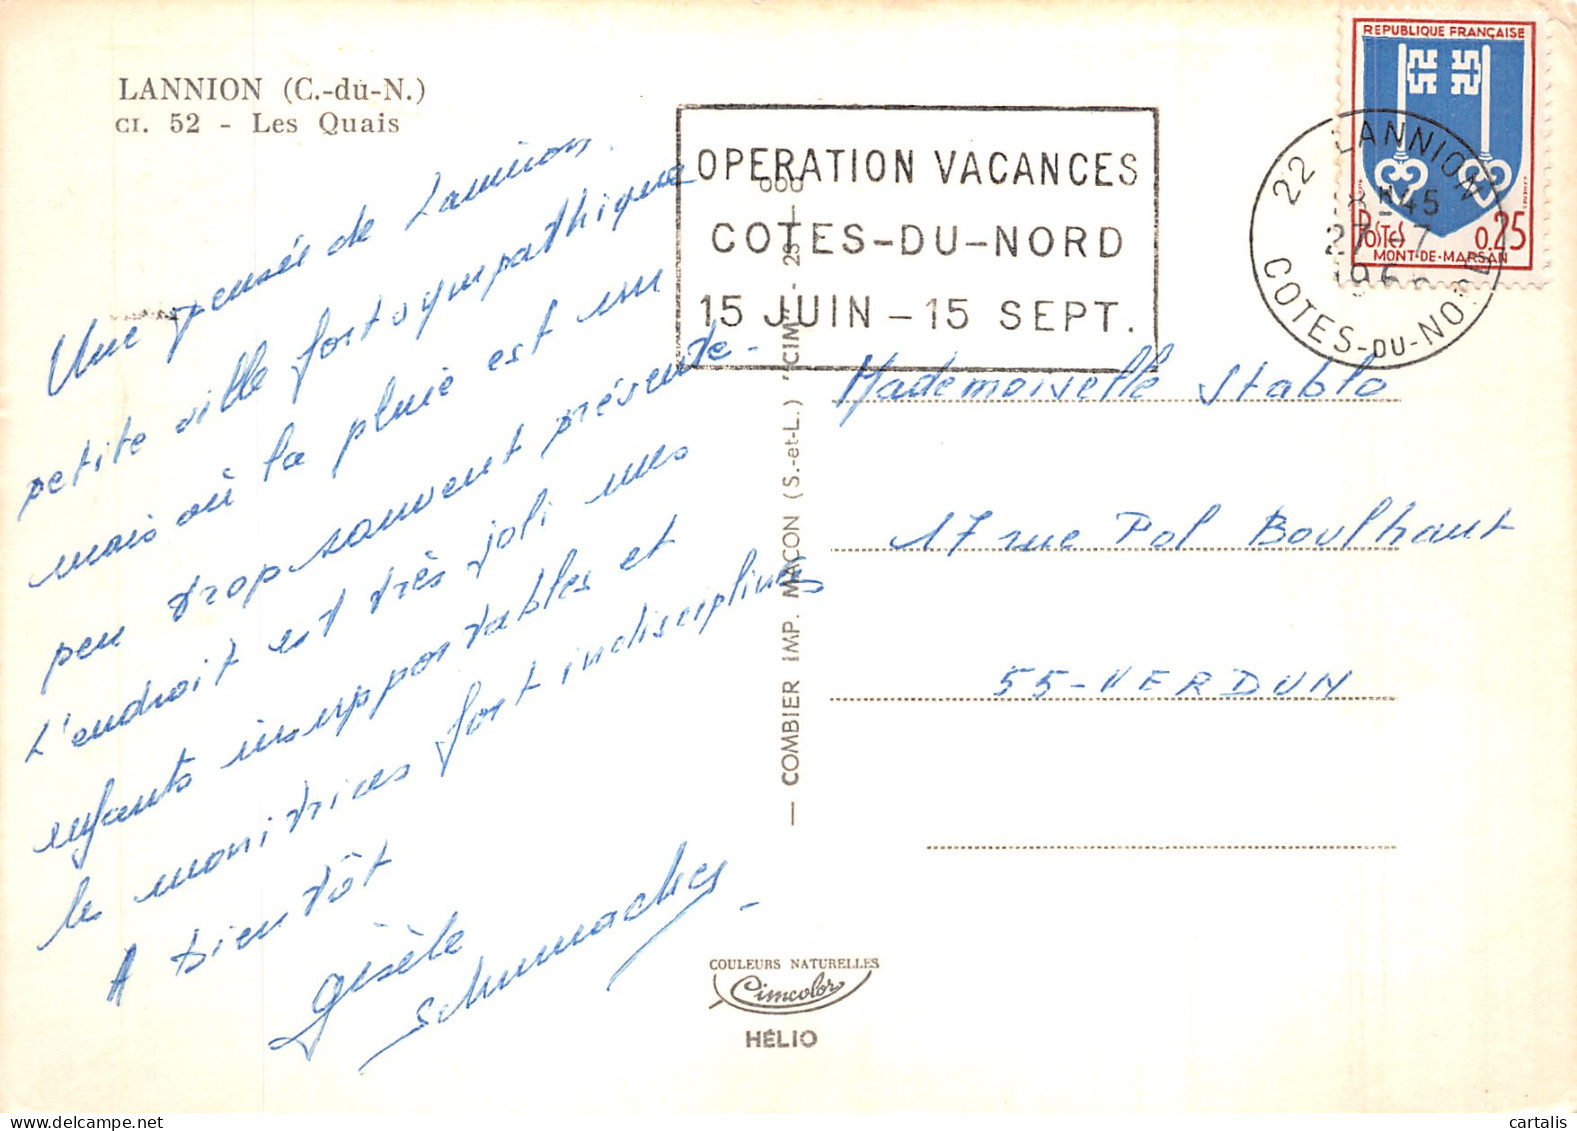 LANNION (C.-du-N.)
CI. 52 - Les Quais
Une pensée de Lannion
petite ville fort sympathique
mais où la pluie est un
peu trop souvent présente-
L'endroit est très joli mes
enfants insupportables et
les monitrices fort indisciplinées
A bientôt
Gisèle
Schumacher
OPERATION VACANCES
COTES-DU-NORD
15 JUIN - 15 SEPT.
REPUBLIQUE FRANÇAISE
POSTES 0,25
MONT-DE-MARSAN
22 LANNION
18H45
27-7
COTES-DU-NORD
Mademoiselle Stablo
17 rue Pol Boulhaut
55-VERDUN
— COMBIER IMP. MACON (S.-et-L.) "CIM" —
COULEURS NATURELLES
Cimcolor
HÉLIO
cartalis